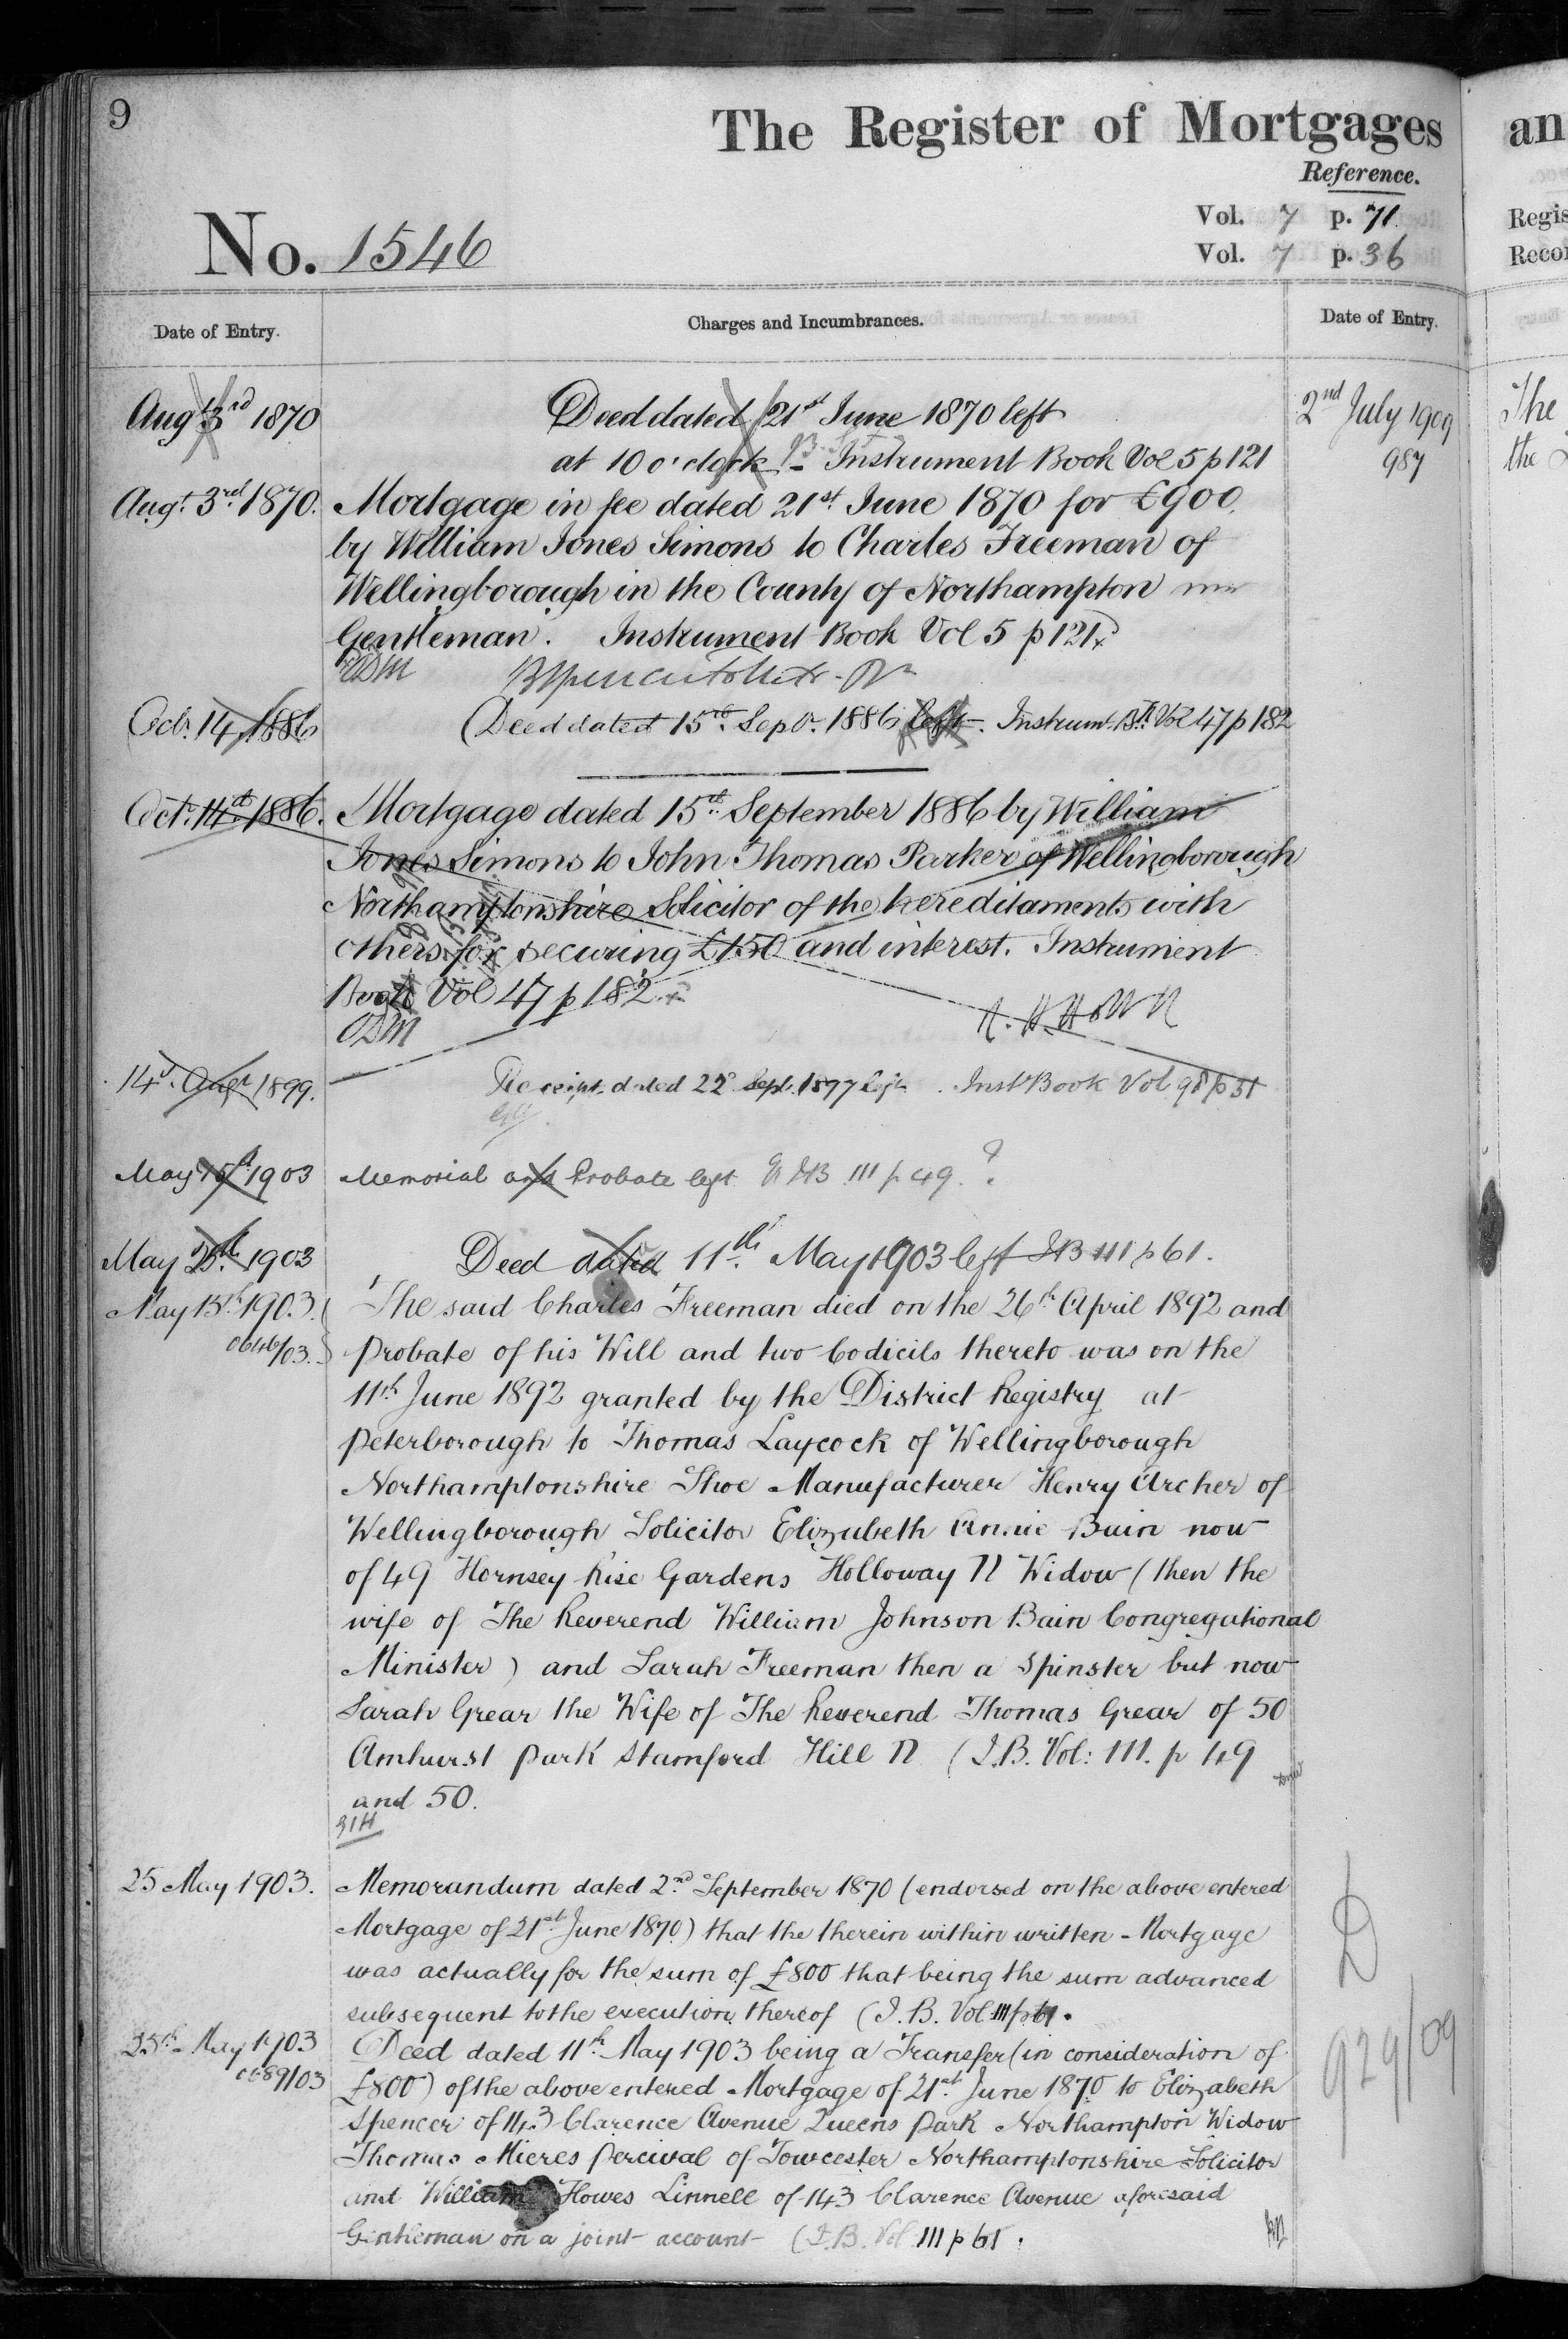 9
The Register of Mortgages
Reference.
No. 1546
Vol. 7 p. 71
Vol. 7 p. 36
Date of Entry.
Charges and Incumbrances.
Date of Entry.
Augt 3rd 1870
Deed dated 21st June 1870 left
at 10 o'clock Instrument Book Vol 5 p 121
2nd July 1909
987
Augt. 3rd 1870.
Mortgage in fee dated 21st June 1870 for £900,
by William Jones Simons to Charles Freeman of
Wellingborough in the County of Northampton
Gentleman. Instrument Book Vol 5 p 121
Octr. 14 1886
(Deed dated 15th Sepr. 1886 left. Instrumt. Bk. Vol 47 p 182
Oct. 14th 1886.
Mortgage dated 15th September 1886 by William
Jones Simons to John Thomas Parker of Wellingborough
Northamptonshire Solicitor of the hereditaments with
others for securing £150 and interest. Instrument
Book Vol 47 p 182
14 Augt 1899.
Receipt dated 22d Sept. 1897 left. Inst Book Vol 98 p 51
May 15th 1903
Memorial and Probate left IB 111 p 49. ?
May 25th 1903
Deed dated 11th May 1903 left IB 111 p 61.
May 15th 1903.
0646/03.
The said Charles Freeman died on the 26th April 1892 and
Probate of his Will and two Codicils thereto was on the
11th June 1892 granted by the District Registry at
Peterborough to Thomas Laycock of Wellingborough
Northamptonshire Shoe Manufacturer Henry Archer of
Wellingborough Solicitor Elizabeth Annie Bain now
of 49 Hornsey Rise Gardens Holloway N Widow (then the
wife of The Reverend William Johnson Bain Congregational
Minister) and Sarah Freeman then a Spinster but now
Sarah Grear the Wife of The Reverend Thomas Grear of 50
Amhurst Park Stamford Hill N (I.B. Vol: 111. p 49
and 50.
25 May 1903.
Memorandum dated 2nd September 1870 (endorsed on the above entered
Mortgage of 21st June 1870) that the therein within written Mortgage
was actually for the sum of £800 that being the sum advanced
subsequent to the execution thereof (I.B. Vol 111 p 61.
25th May 1903
0689/03
Deed dated 11th May 1903 being a Transfer (in consideration of
£800) of the above entered Mortgage of 21st June 1870 to Elizabeth
Spencer of 143 Clarence Avenue Queens Park Northampton Widow
Thomas Mieres Percival of Towcester Northamptonshire Solicitor
and William Howes Linnell of 143 Clarence Avenue aforesaid
Gentleman on a joint account (I.B. Vol 111 p 61.
D
929/09
an
Regis
Recor
The
the